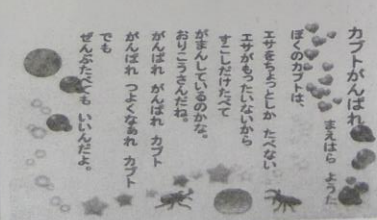 カブトがんばれ
まえはら ようた
ぼくのカブトは、
エサをちょっとしか たべない
エサがもったいないから
すこしだけたべて
がまんしているのかな。
おりこうさんだね。
がんばれ がんばれ カブト
がんばれ つよくなぁれ カブト
でも
ぜんぶたべても いいんだよ。